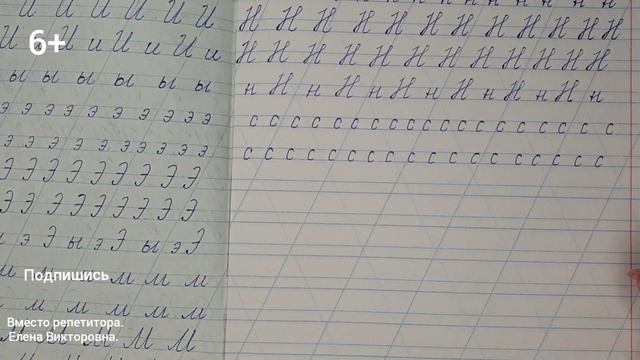 И И И И И И
И И и И и И и
ы ы ы ы ы ы
э э э э э э э э э э
э э э э э э э э э э
Э Э Э Э Э Э Э Э Э
Э Э Э Э Э Э Э Э
э Э ы э Э ы э Э
м м м м м м
м м м м м м
М М М М М
Н Н Н Н Н Н Н Н Н Н Н
Н Н Н Н Н Н Н Н Н Н Н
н Н н Н н Н н Н н Н н Н н
с с с с с с с с с с с с с с с с с с с с с
с с с с с с с с с с с с с с с с с с с
6+
Подпишись
Вместо репетитора.
Елена Викторовна.